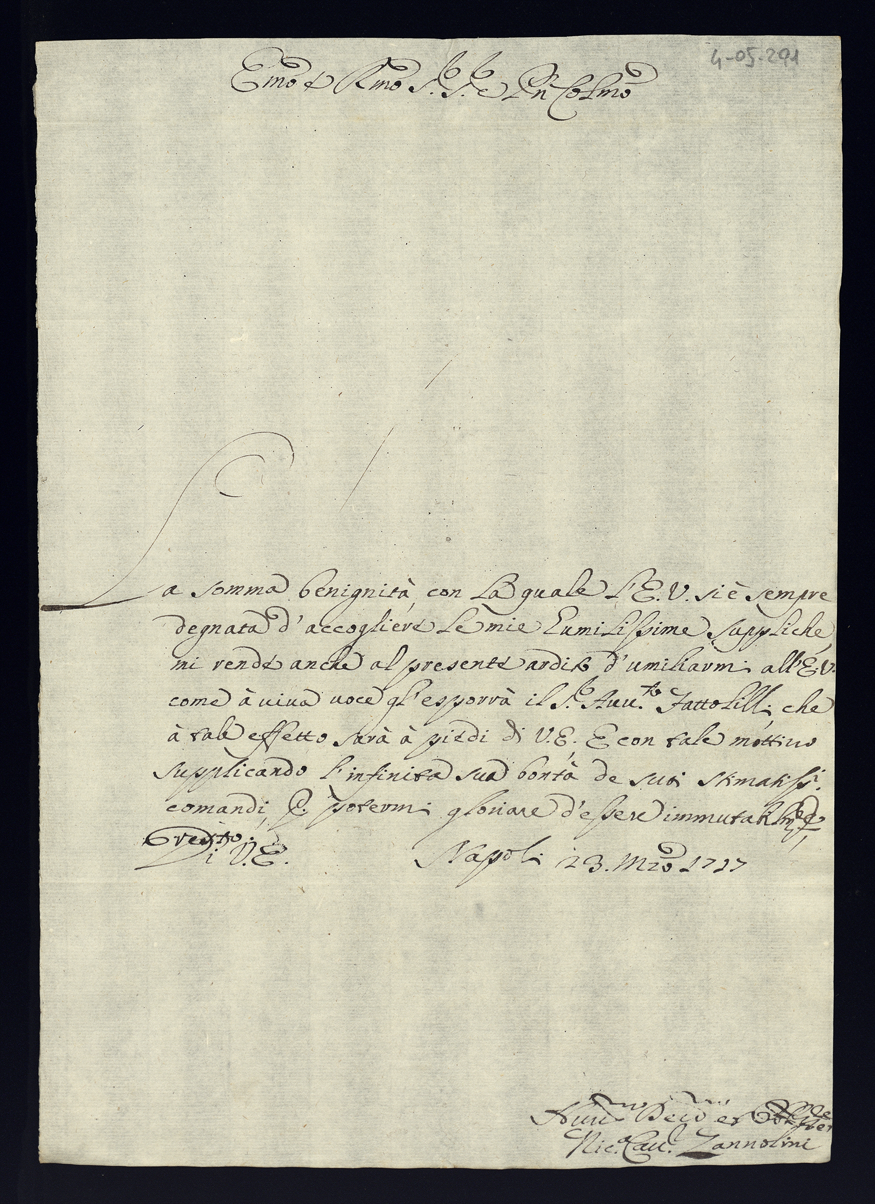 4-05-291
Emo e Rmo Sig.r Sig.r e Pn Colmo
La somma benignità con la quale l'E.V. si è sempre
degnata d'accogliere le mie humilissime suppliche
mi rende anche al presente ardito d'umiliarmi all'E.V.
come à viva voce gl'esporrà il Sig.r Avv.to Fattolilli che
à tale effetto sarà à piedi di V.E. E con tale mottivo
supplicando l'infinita sua bontà de suoi stimatissi.
comandi, p. potermi gloriare d'essere immutabilme
Di V.E.
Napoli 23. Mzo 1717
Nic.a Cav. Zannolini